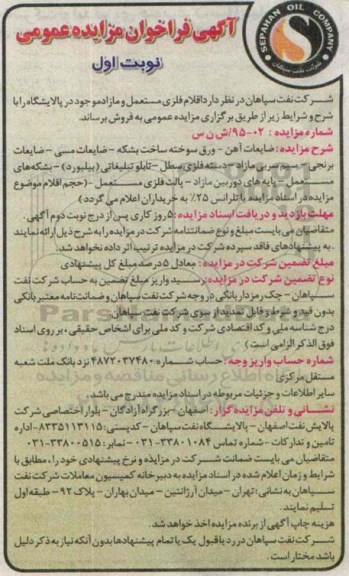 SEPAHAN OIL COMPANY
شرکت نفت سپاهان
آگهی فراخوان مزایده عمومی
نوبت اول
شرکت نفت سپاهان در نظر دارد اقلام فلزی مستعمل و مازاد موجود در پالایشگاه را با
شرح و شرایط زیر از طریق برگزاری مزایده عمومی به فروش برساند.
شماره مزایده : ۰۲-۹۵/ش ن س
شرح مزایده : ضایعات آهن - ورق سوخته ساخت بشکه - ضایعات مسی - ضایعات
برنجی - سیم سربی مازاد - دسته فلزی سطل - تابلو تبلیغاتی (بیلبورد) - بشکه‌های
مستعمل - پایه های دوربین مازاد - پالت فلزی مستعمل - (حجم اقلام موضوع
مزایده در اسناد مزایده با تلرانس ۲۵٪ به خریداران اعلام می گردد)
مهلت بازدید و دریافت اسناد مزایده : ۵ روز کاری پس از درج نوبت دوم آگهی.
متقاضیان می بایست مبلغ و نوع ضمانتنامه شرکت در مزایده را به شرح ذیل ارائه نمایند
. به پیشنهادهای فاقد سپرده شرکت در مزایده ترتیب اثر داده نخواهد شد.
مبلغ تضمین شرکت در مزایده : معادل ۵ درصد مبلغ کل پیشنهادی
نوع تضمین شرکت در مزایده : رسید واریز مبلغ تضمین به حساب شرکت نفت
سپاهان - چک رمزدار بانکی در وجه شرکت نفت سپاهان و ضمانت‌نامه معتبر بانکی
بدون قید و شرط و قابل تمدید از سوی شرکت نفت سپاهان
درج شناسه ملی و کد اقتصادی شرکت و کد ملی برای اشخاص حقیقی ، بر روی اسناد
فوق الذکر الزامی است)
شماره حساب واریز وجه : حساب شماره ۴۸۷۲۰۳۷۴۸۰ نزد بانک ملت شعبه
مستقل مرکزی
سایر اطلاعات و جزئیات مربوطه در اسناد مزایده مندرج می باشد.
نشانی و تلفن مزایده گزار : اصفهان - بزرگراه آزادگان - بلوار اختصاصی شرکت
پالایش نفت اصفهان - پالایشگاه نفت سپاهان - کدپستی : ۸۳۳۵۱۱۳۱۱۵-اداره
تامین و تدارکات - شماره تماس ۳۳۸۰۱۰۸۴-۰۳۱ - نمابر : ۳۳۸۰۰۵۱۵-۰۳۱
متقاضیان می بایست ضمانت شرکت در مزایده و نرخ پیشنهادی خود را ، مطابق با
شرایط و زمان اعلام شده در اسناد مزایده به دبیرخانه کمیسیون معاملات شرکت نفت
سپاهان به نشانی : تهران - میدان آرژانتین - میدان بهاران - پلاک ۹۲ - طبقه اول
تسلیم نمایند.
هزینه چاپ آگهی از برنده مزایده اخذ خواهد شد.
شرکت نفت سپاهان در رد یا قبول یک یا تمام پیشنهادها بدون آنکه نیاز به ذکر دلیل
باشد مختار است .